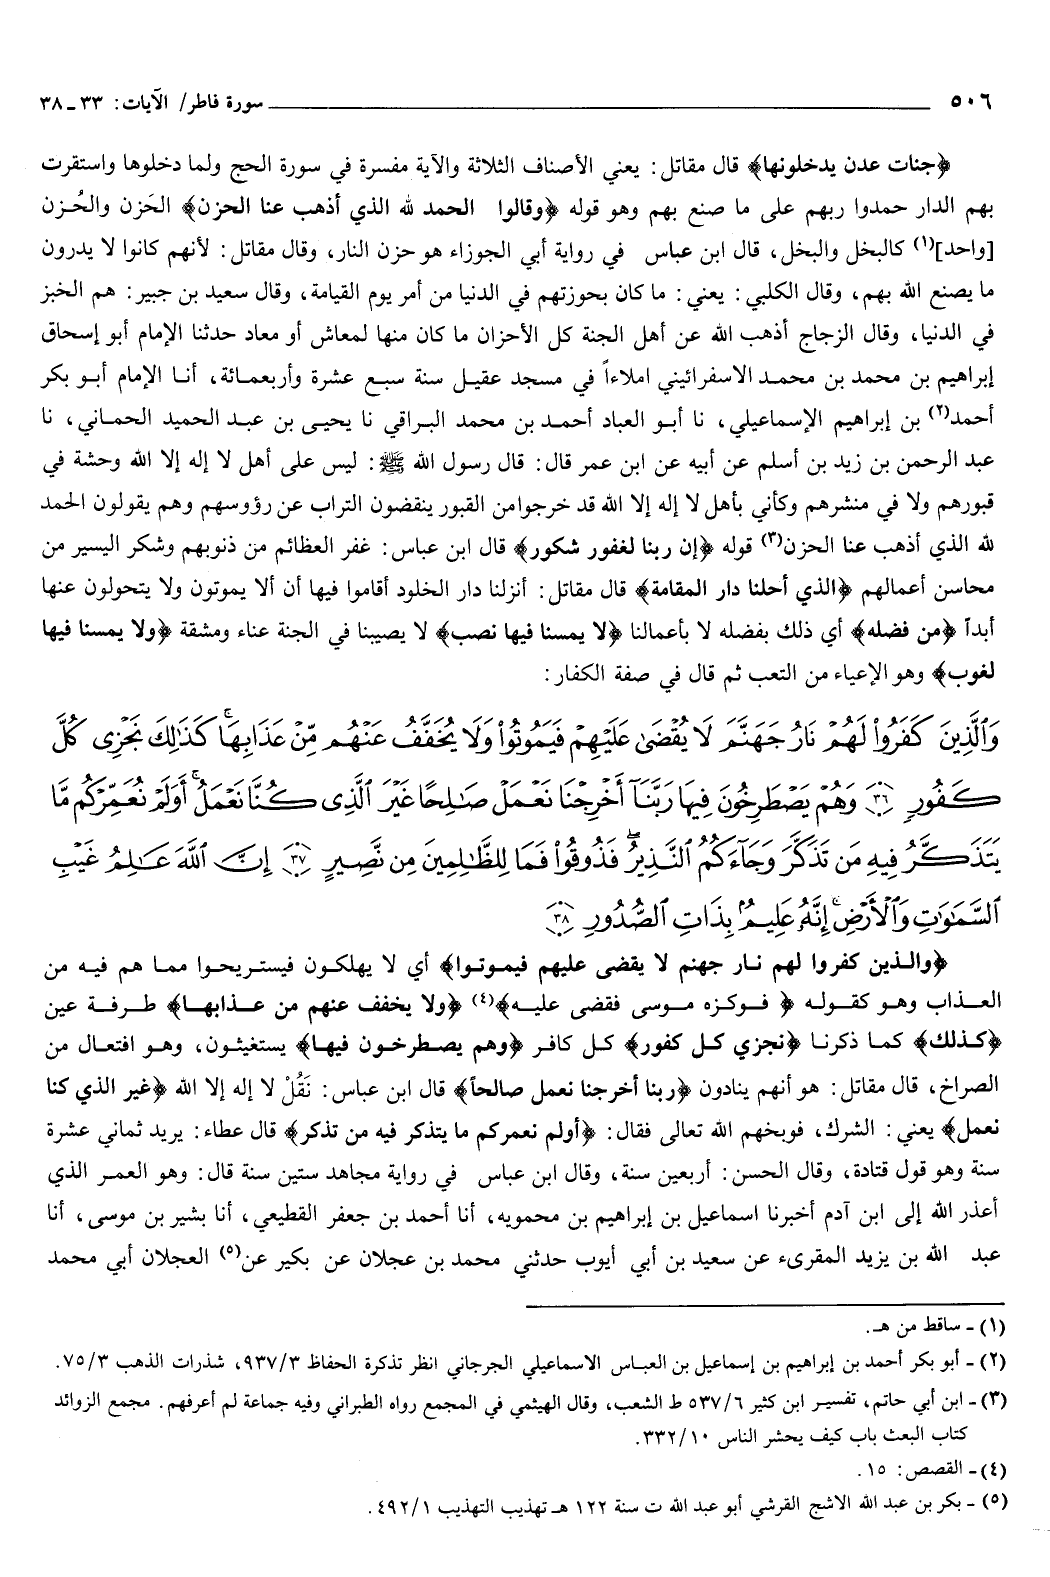 ٥٠٦ سورة فاطر/ الآيات: ٣٣ ـ ٣٨
﴿جنات عدن يدخلونها﴾ قال مقاتل: يعني الأصناف الثلاثة والآية مفسرة في سورة الحج ولما دخلوها واستقرت
بهم الدار حمدوا ربهم على ما صنع بهم وهو قوله ﴿وقالوا الحمد لله الذي أذهب عنا الحزن﴾ الحَزن والحُزن
[واحد](١) كالبخل والبخل، قال ابن عباس في رواية أبي الجوزاء هو حزن النار، وقال مقاتل: لأنهم كانوا لا يدرون
ما يصنع الله بهم، وقال الكلبي: يعني: ما كان بحوزتهم في الدنيا من أمر يوم القيامة، وقال سعيد بن جبير: هم الخبز
في الدنيا، وقال الزجاج أذهب الله عن أهل الجنة كل الأحزان ما كان منها لمعاش أو معاد حدثنا الإمام أبو إسحاق
إبراهيم بن محمد بن محمد الاسفرائيني املاءاً في مسجد عقيل سنة سبع عشرة وأربعمائة، أنا الإمام أبو بكر
أحمد(٢) بن إبراهيم الإسماعيلي، نا أبو العباد أحمد بن محمد البراقي نا يحيى بن عبد الحميد الحماني، نا
عبد الرحمن بن زيد بن أسلم عن أبيه عن ابن عمر قال: قال رسول الله ﷺ: ليس على أهل لا إله إلا الله وحشة في
قبورهم ولا في منشرهم وكأني بأهل لا إله إلا الله قد خرجوامن القبور ينقضون التراب عن رؤوسهم وهم يقولون الحمد
لله الذي أذهب عنا الحزن(٣) قوله ﴿إن ربنا لغفور شكور﴾ قال ابن عباس: غفر العظائم من ذنوبهم وشكر اليسير من
محاسن أعمالهم ﴿الذي أحلنا دار المقامة﴾ قال مقاتل: أنزلنا دار الخلود أقاموا فيها أن ألا يموتون ولا يتحولون عنها
أبداً ﴿من فضله﴾ أي ذلك بفضله لا بأعمالنا ﴿لا يمسنا فيها نصب﴾ لا يصيبنا في الجنة عناء ومشقة ﴿ولا يمسنا فيها
لغوب﴾ وهو الإعياء من التعب ثم قال في صفة الكفار:
وَٱلَّذِينَ كَفَرُوا۟ لَهُمْ نَارُ جَهَنَّمَ لَا يُقْضَىٰ عَلَيْهِمْ فَيَمُوتُوا۟ وَلَا يُخَفَّفُ عَنْهُم مِّنْ عَذَابِهَا ۚ كَذَٰلِكَ نَجْزِى كُلَّ
كَفُورٍ ٣٦ وَهُمْ يَصْطَرِخُونَ فِيهَا رَبَّنَآ أَخْرِجْنَا نَعْمَلْ صَٰلِحًا غَيْرَ ٱلَّذِى كُنَّا نَعْمَلُ ۚ أَوَلَمْ نُعَمِّرْكُم مَّا
يَتَذَكَّرُ فِيهِ مَن تَذَكَّرَ وَجَآءَكُمُ ٱلنَّذِيرُ ۖ فَذُوقُوا۟ فَمَا لِلظَّٰلِمِينَ مِن نَّصِيرٍ ٣٧ إِنَّ ٱللَّهَ عَٰلِمُ غَيْبِ
ٱلسَّمَٰوَٰتِ وَٱلْأَرْضِ ۚ إِنَّهُۥ عَلِيمٌۢ بِذَاتِ ٱلصُّدُورِ ٣٨
﴿والذين كفروا لهم نار جهنم لا يقضى عليهم فيموتوا﴾ أي لا يهلكون فيستريحوا مما هم فيه من
العذاب وهو كقوله ﴿ فوكزه موسى فقضى عليه﴾(٤) ﴿ولا يخفف عنهم من عذابها﴾ طرفة عين
﴿كذلك﴾ كما ذكرنا ﴿نجزي كل كفور﴾ كل كافر ﴿وهم يصطرخون فيها﴾ يستغيثون، وهو افتعال من
الصراخ، قال مقاتل: هو أنهم ينادون ﴿ربنا أخرجنا نعمل صالحاً﴾ قال ابن عباس: نَقُلْ لا إله إلا الله ﴿غير الذي كنا
نعمل﴾ يعني: الشرك، فوبخهم الله تعالى فقال: ﴿أولم نعمركم ما يتذكر فيه من تذكر﴾ قال عطاء: يريد ثماني عشرة
سنة وهو قول قتادة، وقال الحسن: أربعين سنة، وقال ابن عباس في رواية مجاهد ستين سنة قال: وهو العمر الذي
أعذر الله إلى ابن آدم أخبرنا اسماعيل بن إبراهيم بن محمويه، أنا أحمد بن جعفر القطيعي، أنا بشير بن موسى، أنا
عبد الله بن يزيد المقرىء عن سعيد بن أبي أيوب حدثني محمد بن عجلان عن بكير عن(٥) العجلان أبي محمد
(١) ـ ساقط من هـ.
(٢) ـ أبو بكر أحمد بن إبراهيم بن إسماعيل بن العباس الاسماعيلي الجرجاني انظر تذكرة الحفاظ ٩٣٧/٣، شذرات الذهب ٧٥/٣.
(٣) ـ ابن أبي حاتم، تفسير ابن كثير ٥٣٧/٦ ط الشعب، وقال الهيثمي في المجمع رواه الطبراني وفيه جماعة لم أعرفهم. مجمع الزوائد
كتاب البعث باب كيف يحشر الناس ٣٣٢/١٠.
(٤) ـ القصص: ١٥.
(٥) ـ بكر بن عبد الله الاشج القرشي أبو عبد الله ت سنة ١٢٢ هـ تهذيب التهذيب ٤٩٢/١.